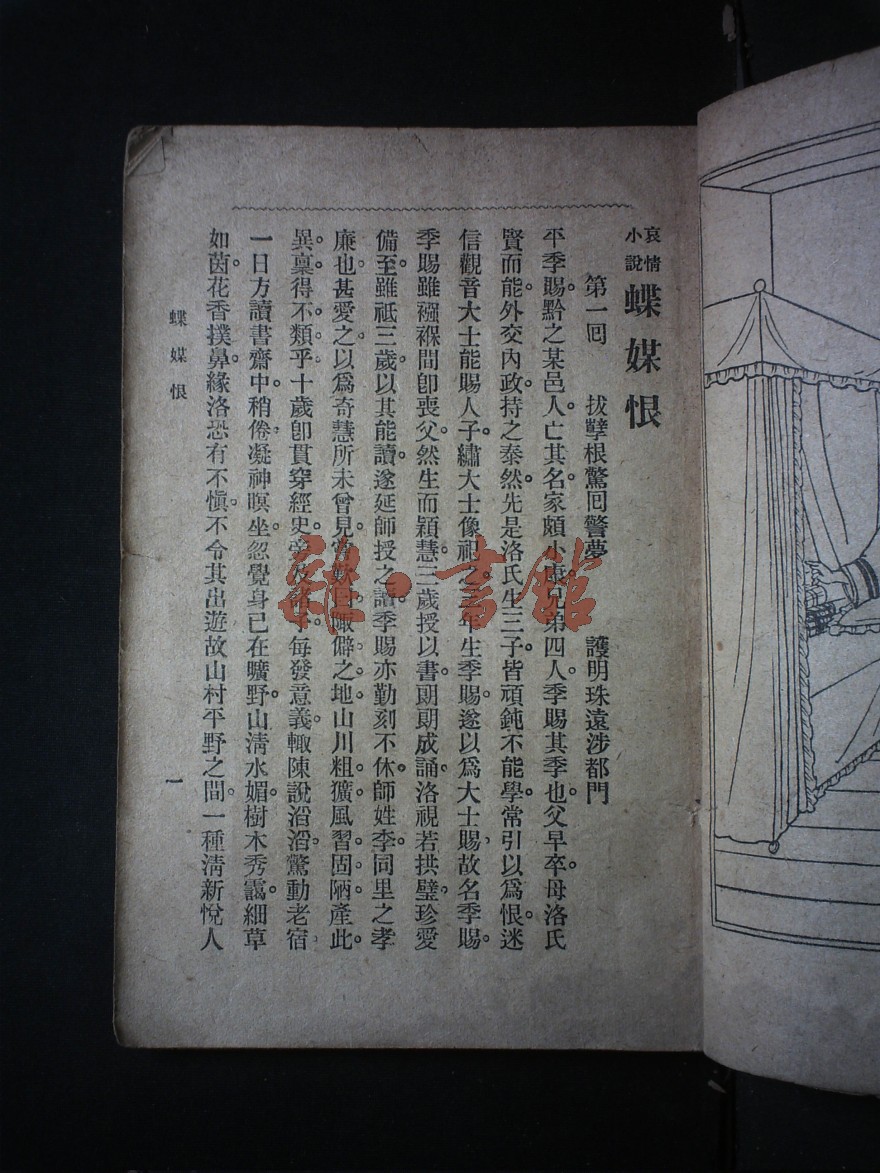 哀情小說 蝶媒恨
第一回 拔孽根驚回警夢 護明珠遠涉都門
平季賜。黔之某邑人。亡其名。家頗小康。兄弟四人。季賜其季也。父早卒。母洛氏
賢而能。外交內政。持之泰然。先是洛氏生三子。皆頑鈍不能學。常引以爲恨。迷
信觀音大士能賜人子。繡大士像祀之。三年生季賜。遂以爲大士賜。故名季賜。
季賜雖襁褓間卽喪父。然生而穎慧。三歲授以書。朗朗成誦。洛視若拱璧。珍愛
備至。雖祗三歲。以其能讀。遂延師授之讀。季賜亦勤刻不休。師姓李。同里之孝
廉也。甚愛之。以爲奇慧所未曾見。嘗歎曰。陬僻之地。山川粗獷。風習固陋。產此
異稟。得不類乎。十歲卽貫穿經史。旁及諸子。每發意義。輒陳說滔滔。驚動老宿。
一日方讀書齋中。稍倦。凝神暝坐。忽覺身已在曠野。山淸水媚。樹木秀靄。細草
如茵。花香撲鼻。緣洛恐有不愼。不令其出遊。故山村平野之間。一種淸新悅人
蝶媒恨
一
雜·書館